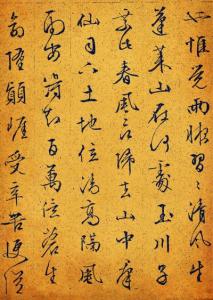 也惟覺兩腋習習清風生
蓬萊山在何處玉川子
乘此春風欲歸去山中群
仙司下土地位清高隔風
雨安得知百萬億蒼生
命墮顛崖受辛苦便從